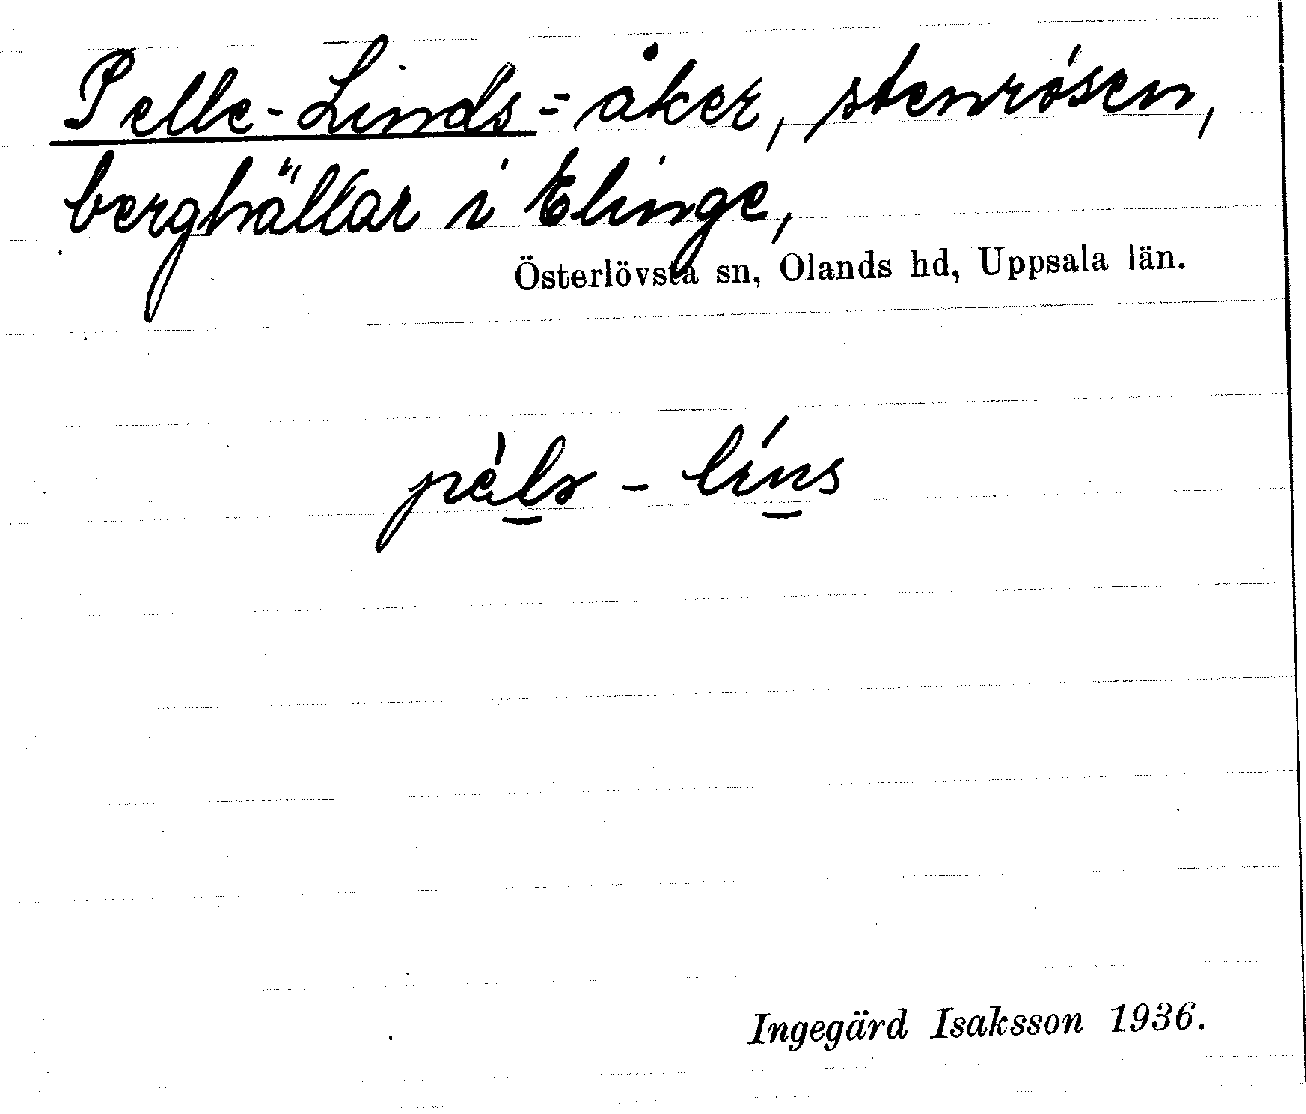 Pelle-Linds = åker, stenrösen,
berghällar i Elinge,
Österlövsta sn, Olands hd, Uppsala län.
Ingegärd Isaksson 1936.